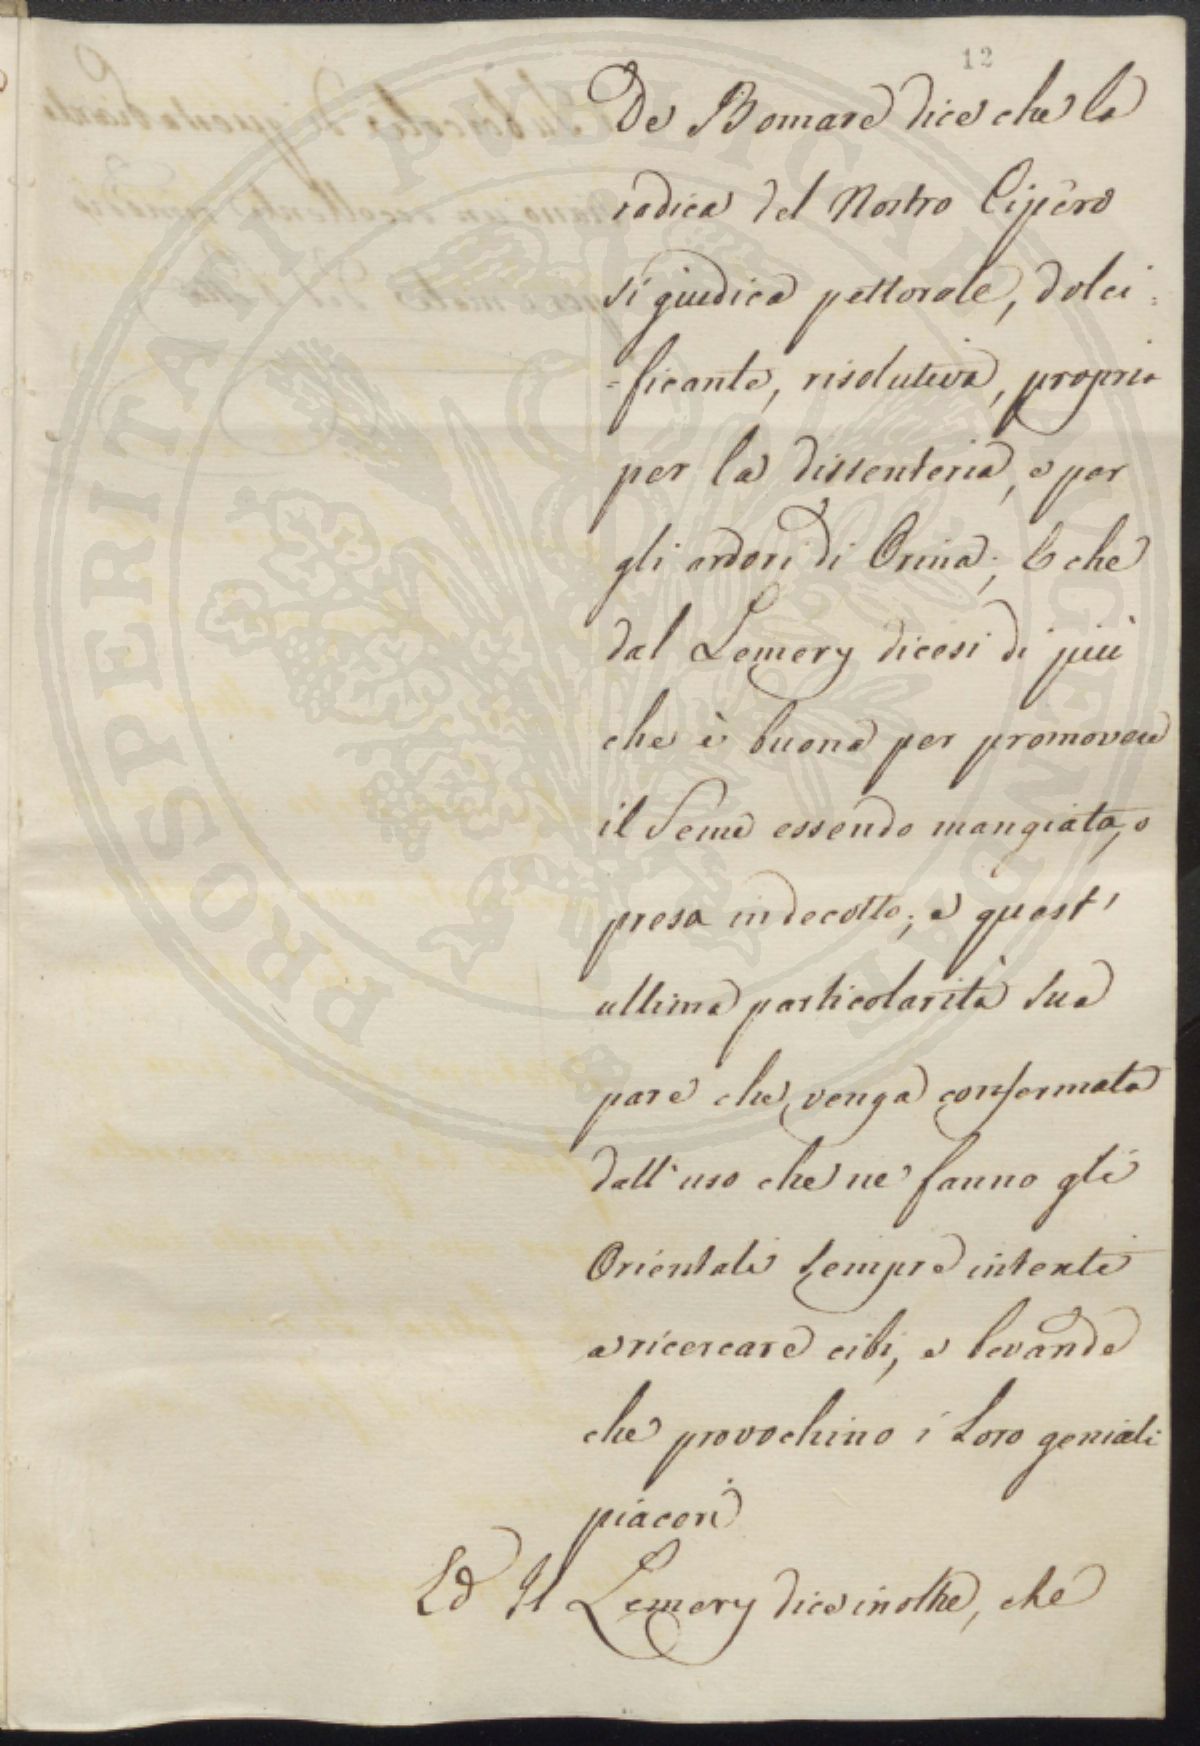 12
De Bomare dice che la
radica del Nostro Cipero
si giudica pettorale, dolci=
=ficante, risolutiva, propria
per la dissenteria, e per
gli ardori di Orina; E che
dal Lemery dicesi di più
che è buona per promovere
il Seme essendo mangiata, o
presa in decotto; e quest'
ultima particolarità sua
pare che venga confermata
dall'uso che ne fanno gli
Orientali sempre intenti
a ricercare cibi, e bevande
che provochino i Loro geniali
piaceri
Ed Il Lemery dice inoltre, che
PROSPERITATI PUBLICAE AUGENDAE